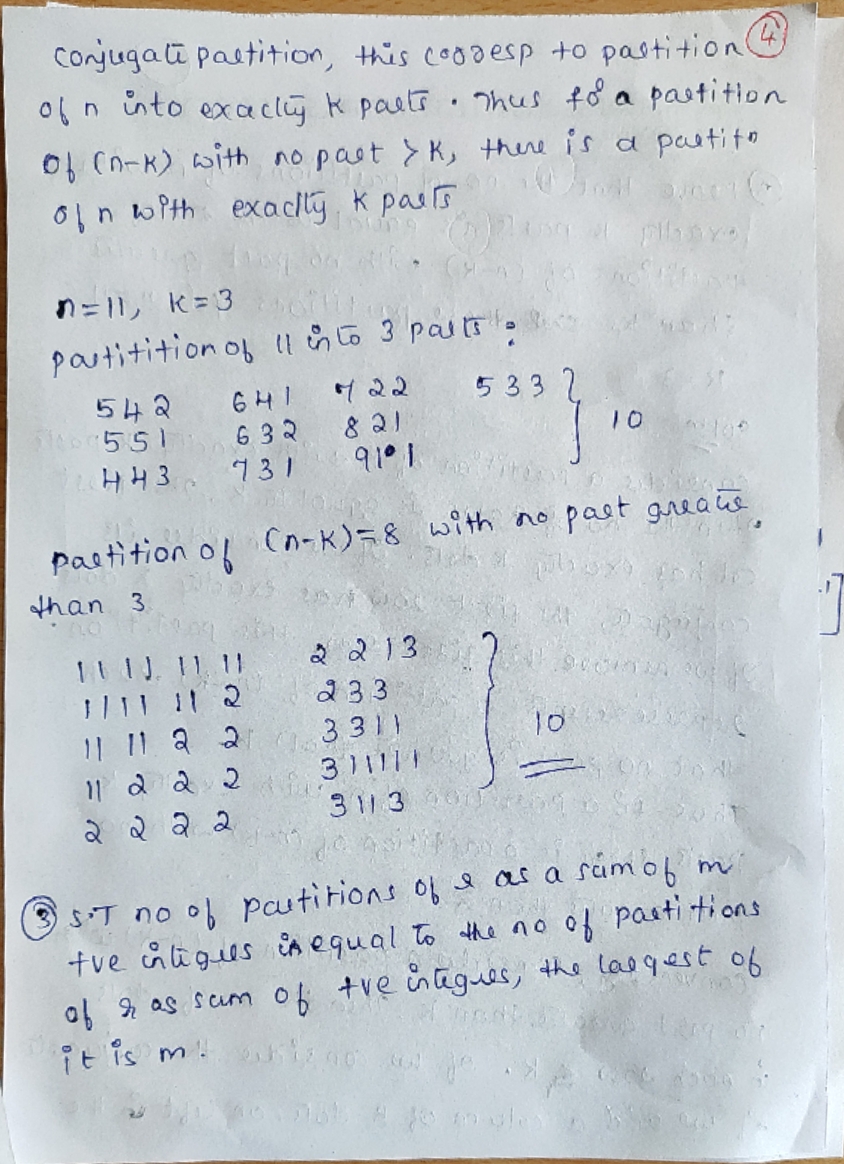 4
conjugate partition, this corresp to partition
of n into exactly k parts. Thus for a partition
of (n-k) with no part > k, there is a partitn
of n with exactly k parts
n=11, k=3
partitition of 11 into 3 parts :
542 641 722 533
551 632 821 10
443 731 9101
partition of (n-k)=8 with no part greater
than 3
11 11 11 11 2 2 1 3
1111 11 2 2 3 3
11 11 2 2 3311 10
11 2 2 2 311111
2 2 2 2 3113
3 S.T no of partitions of r as a sum of m
+ve integers is equal to the no of partitions
of r as sum of +ve integers, the largest of
it is m.